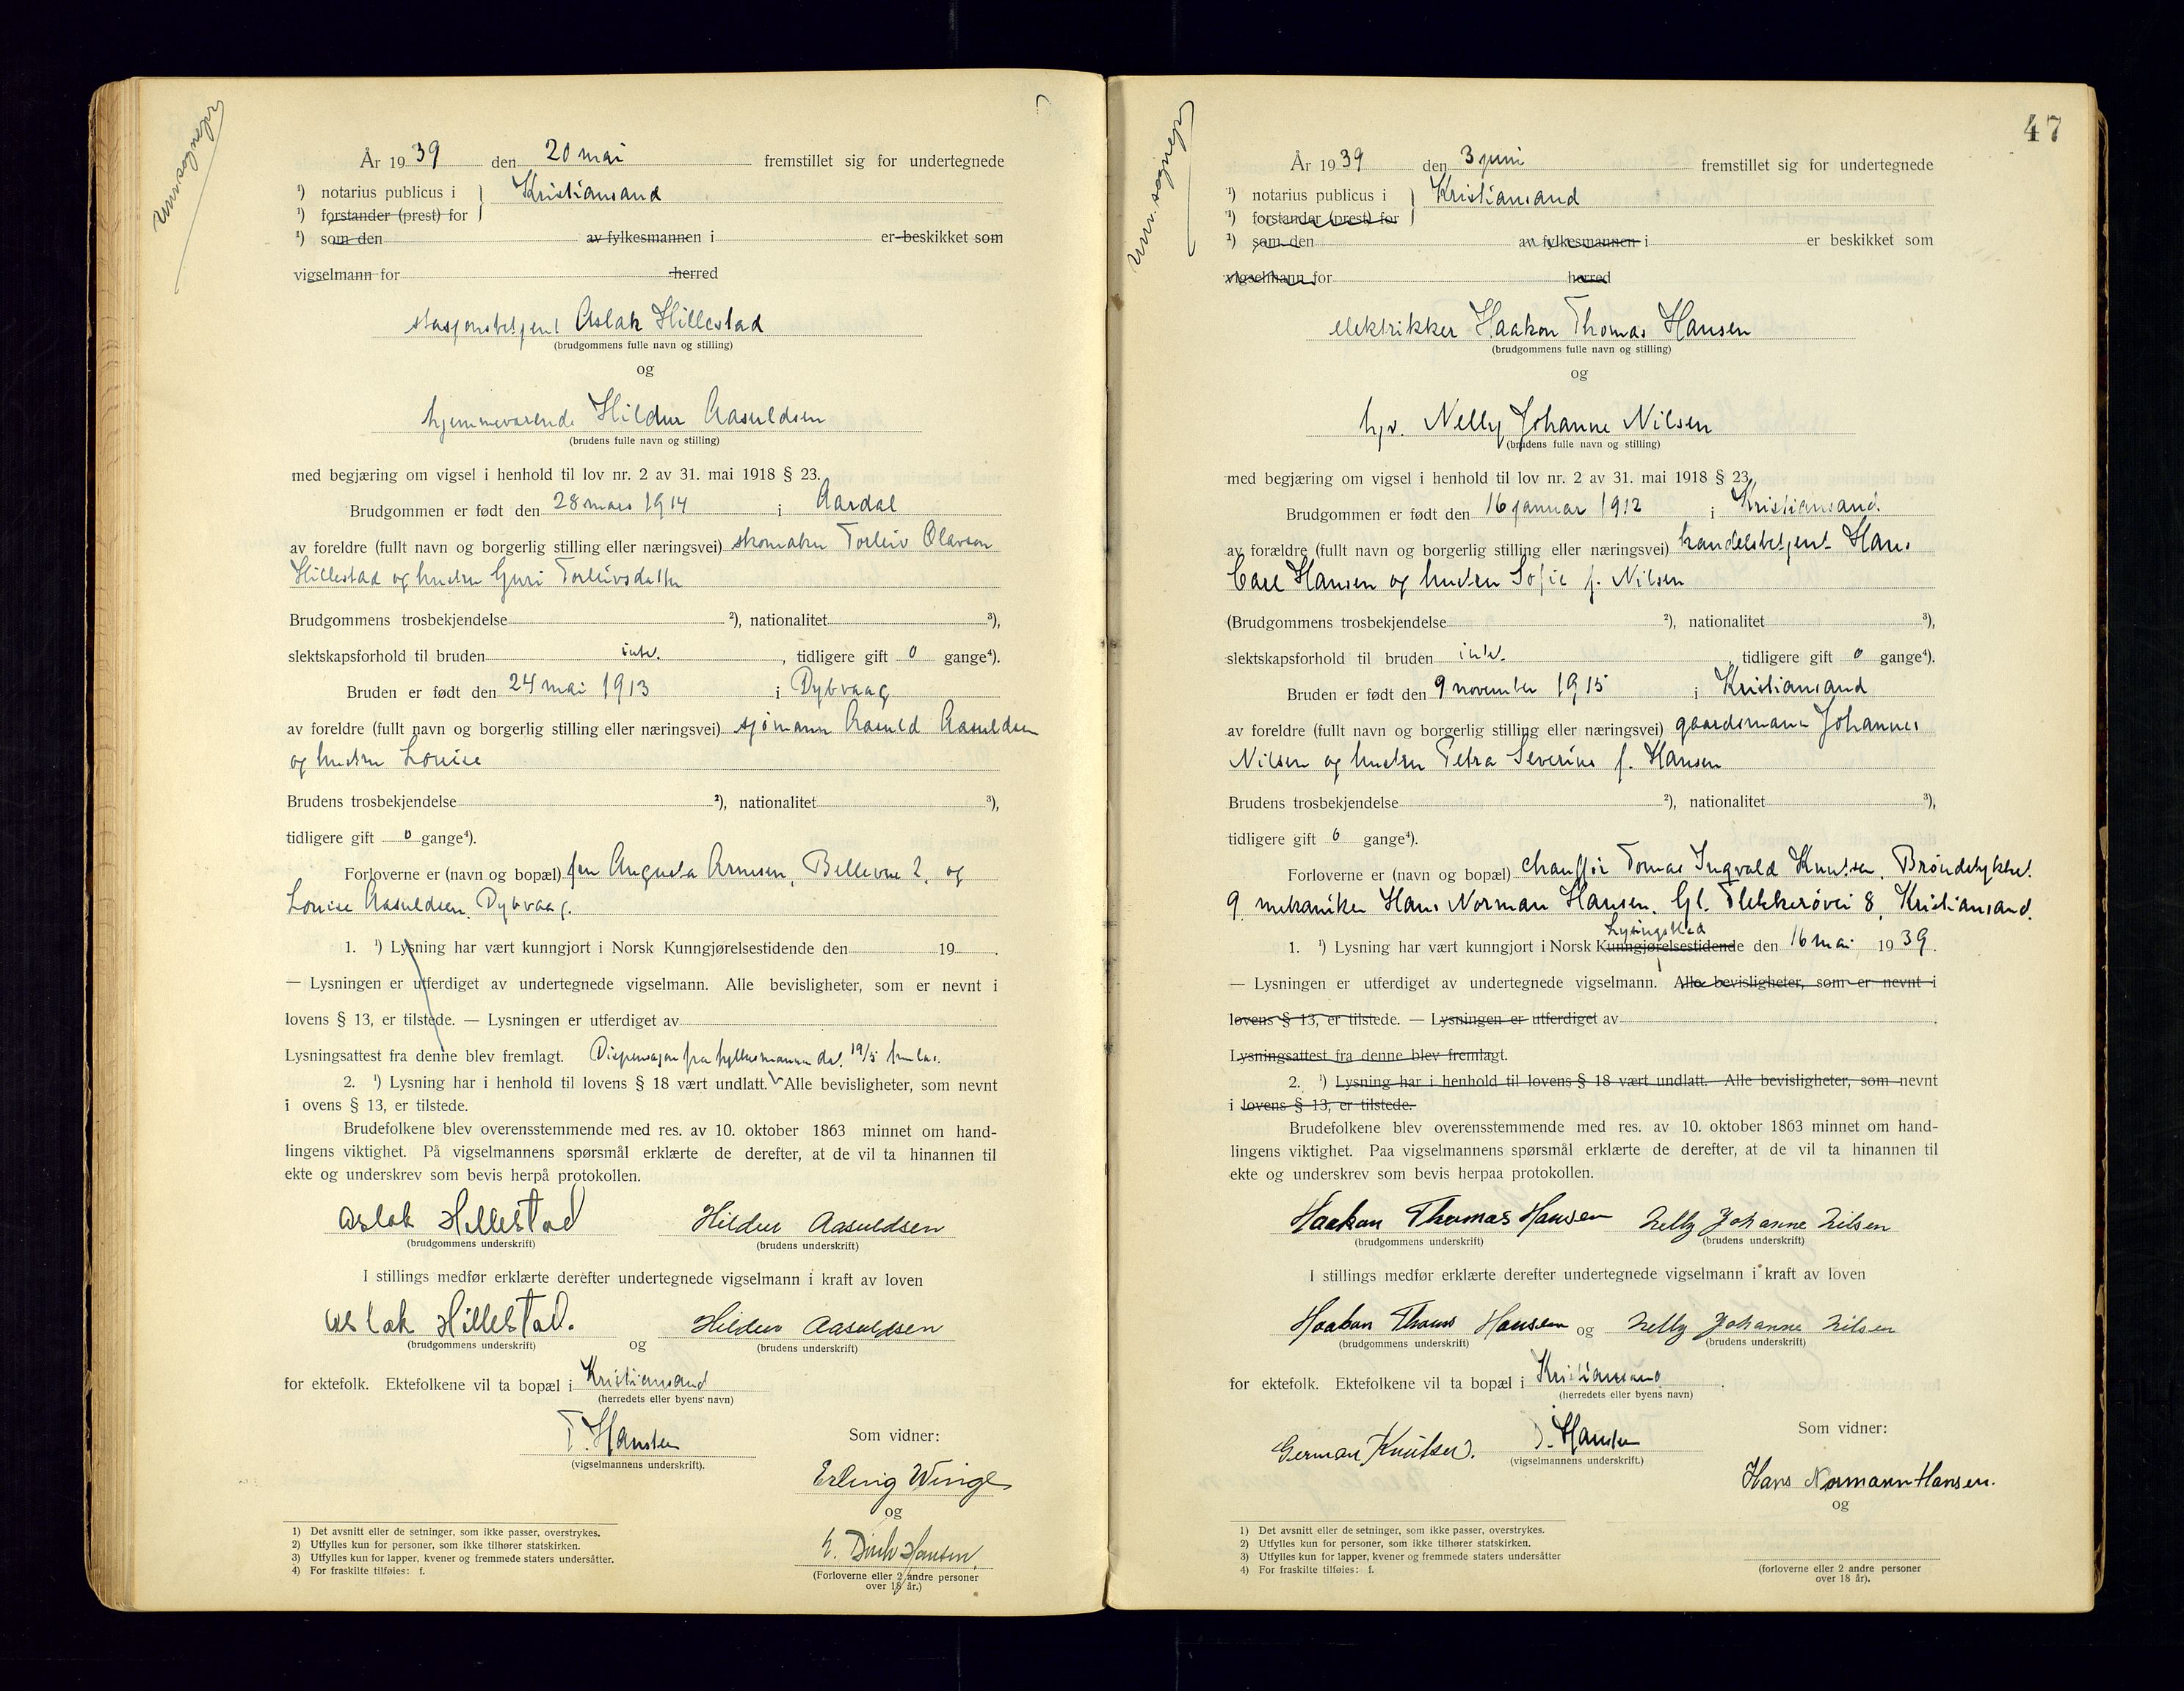 Unn. sognepr
År 1939 den 20 mai fremstillet sig for undertegnede
¹) notarius publicus i } Kristiansand
¹) forstander (prest) for
¹) som den av fylkesmannen i er beskikket som
vigselmann for herred
stasjonsbetjent Aslak Hillestad
(brudgommens fulle navn og stilling)
og
hjemmeværende Hildur Aasuldsen
(brudens fulle navn og stilling)
med begjæring om vigsel i henhold til lov nr. 2 av 31. mai 1918 § 23.
Brudgommen er født den 28 mars 1914 i Aardal
av foreldre (fullt navn og borgerlig stilling eller næringsvei) skomaker Torleiv Olavson
Hillestad og hustru Guri Torleivsdatter
Brudgommens trosbekjendelse ²), nationalitet ³),
slektskapsforhold til bruden intr. , tidligere gift 0 gange⁴).
Bruden er født den 24 mai 1913 i Dybvaag
av foreldre (fullt navn og borgerlig stilling eller næringsvei) sjømann Aasuld Aasuldsen
og hustru Louise
Brudens trosbekjendelse ²), nationalitet ³),
tidligere gift 0 gange⁴).
Forloverne er (navn og bopæl) fru Augusta Arnesen, Bellevue 2, og
Louise Aasuldsen, Dybvaag.
1. ¹) Lysning har vært kunngjort i Norsk Kunngjørelsestidende den 19 .
— Lysningen er utferdiget av undertegnede vigselmann. Alle bevisligheter, som er nevnt i
lovens § 13, er tilstede. — Lysningen er utferdiget av
Lysningsattest fra denne blev fremlagt. Dispensasjon fra fylkesmannen dat. 19/5
2. ¹) Lysning har i henhold til lovens § 18 vært undlatt. Alle bevisligheter, som nevnt
i ovens § 13, er tilstede.
Brudefolkene blev overensstemmende med res. av 10. oktober 1863 minnet om hand-
lingens viktighet. På vigselmannens spørsmål erklærte de derefter, at de vil ta hinannen til
ekte og underskrev som bevis herpå protokollen.
Aslak Hillestad Hildur Aasuldsen
(brudgommens underskrift) (brudens underskrift)
I stillings medfør erklærte derefter undertegnede vigselmann i kraft av loven
Aslak Hillestad. og Hildur Aasuldsen
(brudgommens underskrift) (brudens underskrift)
for ektefolk. Ektefolkene vil ta bopæl i Kristiansand
(herredets eller byens navn)
T. Hansten
(vigselmannens underskrift).
Som vidner:
Erling Winge
og
Hansen
(Forloverne eller 2 andre personer
over 18 år.)
1) Det avsnitt eller de setninger, som ikke passer, overstrykes.
2) Utfylles kun for personer, som ikke tilhører statskirken.
3) Utfylles kun for lapper, kvener og fremmede staters undersåtter.
4) For fraskilte tilføies: f.
47
Unn. sognepr
År 1939 den 3 juni fremstillet sig for undertegnede
¹) notarius publicus i } Kristiansand
¹) forstander (prest) for
¹) som den av fylkesmannen i er beskikket som
vigselmann for herred
elektrikker Haakon Thomas Hansen
(brudgommens fulle navn og stilling)
og
hjv. Nelly Johanne Nilsen
(brudens fulle navn og stilling)
med begjæring om vigsel i henhold til lov nr. 2 av 31. mai 1918 § 23.
Brudgommen er født den 16 januar 1912 i Kristiansand.
av forældre (fullt navn og borgerlig stilling eller næringsvei) handelsbetjent Hans
Carl Hansen og hustru Sofie f. Nilsen
(Brudgommens trosbekjendelse ²), nationalitet ³),
slektskapsforhold til bruden intr. tidligere gift 0 gange⁴).
Bruden er født den 9 november 1915 i Kristiansand
av foreldre (fullt navn og borgerlig stilling eller næringsvei) gaardsmann Johannes
Nilsen og hustru Petra Severine f. Hansen
Brudens trosbekjendelse ²), nationalitet ³),
tidligere gift 0 gange⁴).
Forloverne er (navn og bopæl) chauffør Tomas Ingvald Knutsen, Brøndstykket
9, mekaniker Hans Norman Hansen, Gl. Flekkerøvei 8, Kristiansand.
Lysingsblad
1. ¹) Lysning har vært kunngjort i Norsk Kunngjørelsestidende den 16 mai 1939.
— Lysningen er utferdiget av undertegnede vigselmann. Alle bevisligheter, som er nevnt i
lovens § 13, er tilstede. — Lysningen er utferdiget av .
Lysningsattest fra denne blev fremlagt.
2. ¹) Lysning har i henhold til lovens § 18 vært undlatt. Alle bevisligheter, som nevnt
i lovens § 13, er tilstede.
Brudefolkene blev overensstemmende med res. av 10. oktober 1863 minnet om hand-
lingens viktighet. Paa vigselmannens spørsmål erklærte de derefter, at de vil ta hinannen til
ekte og underskrev som bevis herpaa protokollen.
Haakon Thomas Hansen Nelly Johanne Nilsen
(brudgommens underskrift) (brudens underskrift)
I stillings medfør erklærte derefter undertegnede vigselmann i kraft av loven
Haakon Thomas Hansen og Nelly Johanne Nilsen
(brudgommens underskrift) (brudens underskrift)
for ektefolk. Ektefolkene vil ta bopæl i Kristiansand.
(herredets eller byens navn)
German Knutsen. T. Hansten
(vigselmannens underskrift.)
Som vidner:
Hans Normann Hansen.
og
(forloverne eller 2 andre personer
over 18 år).
1) Det avsnitt eller de setninger, som ikke passer, overstrykes.
2) Utfylles kun for personer, som ikke tilhører statskirken.
3) Utfylles kun for lapper, kvener og fremmede staters undersåtter
4) For fraskilte tilføies: f.